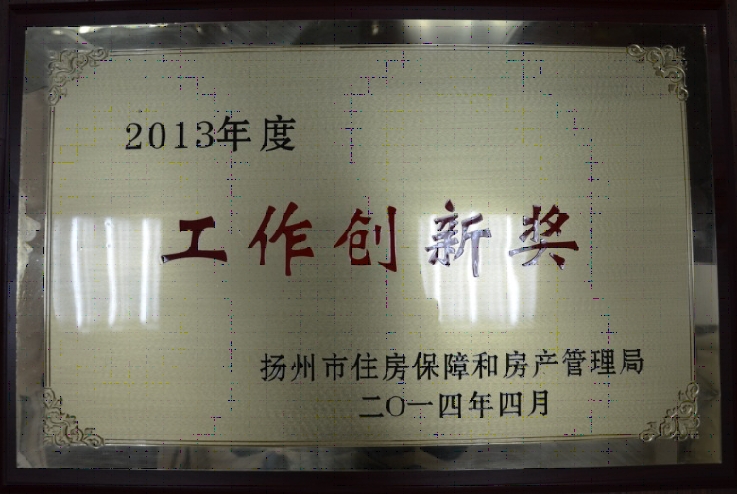 2013年度
工作创新奖
扬州市住房保障和房产管理局
二〇一四年四月